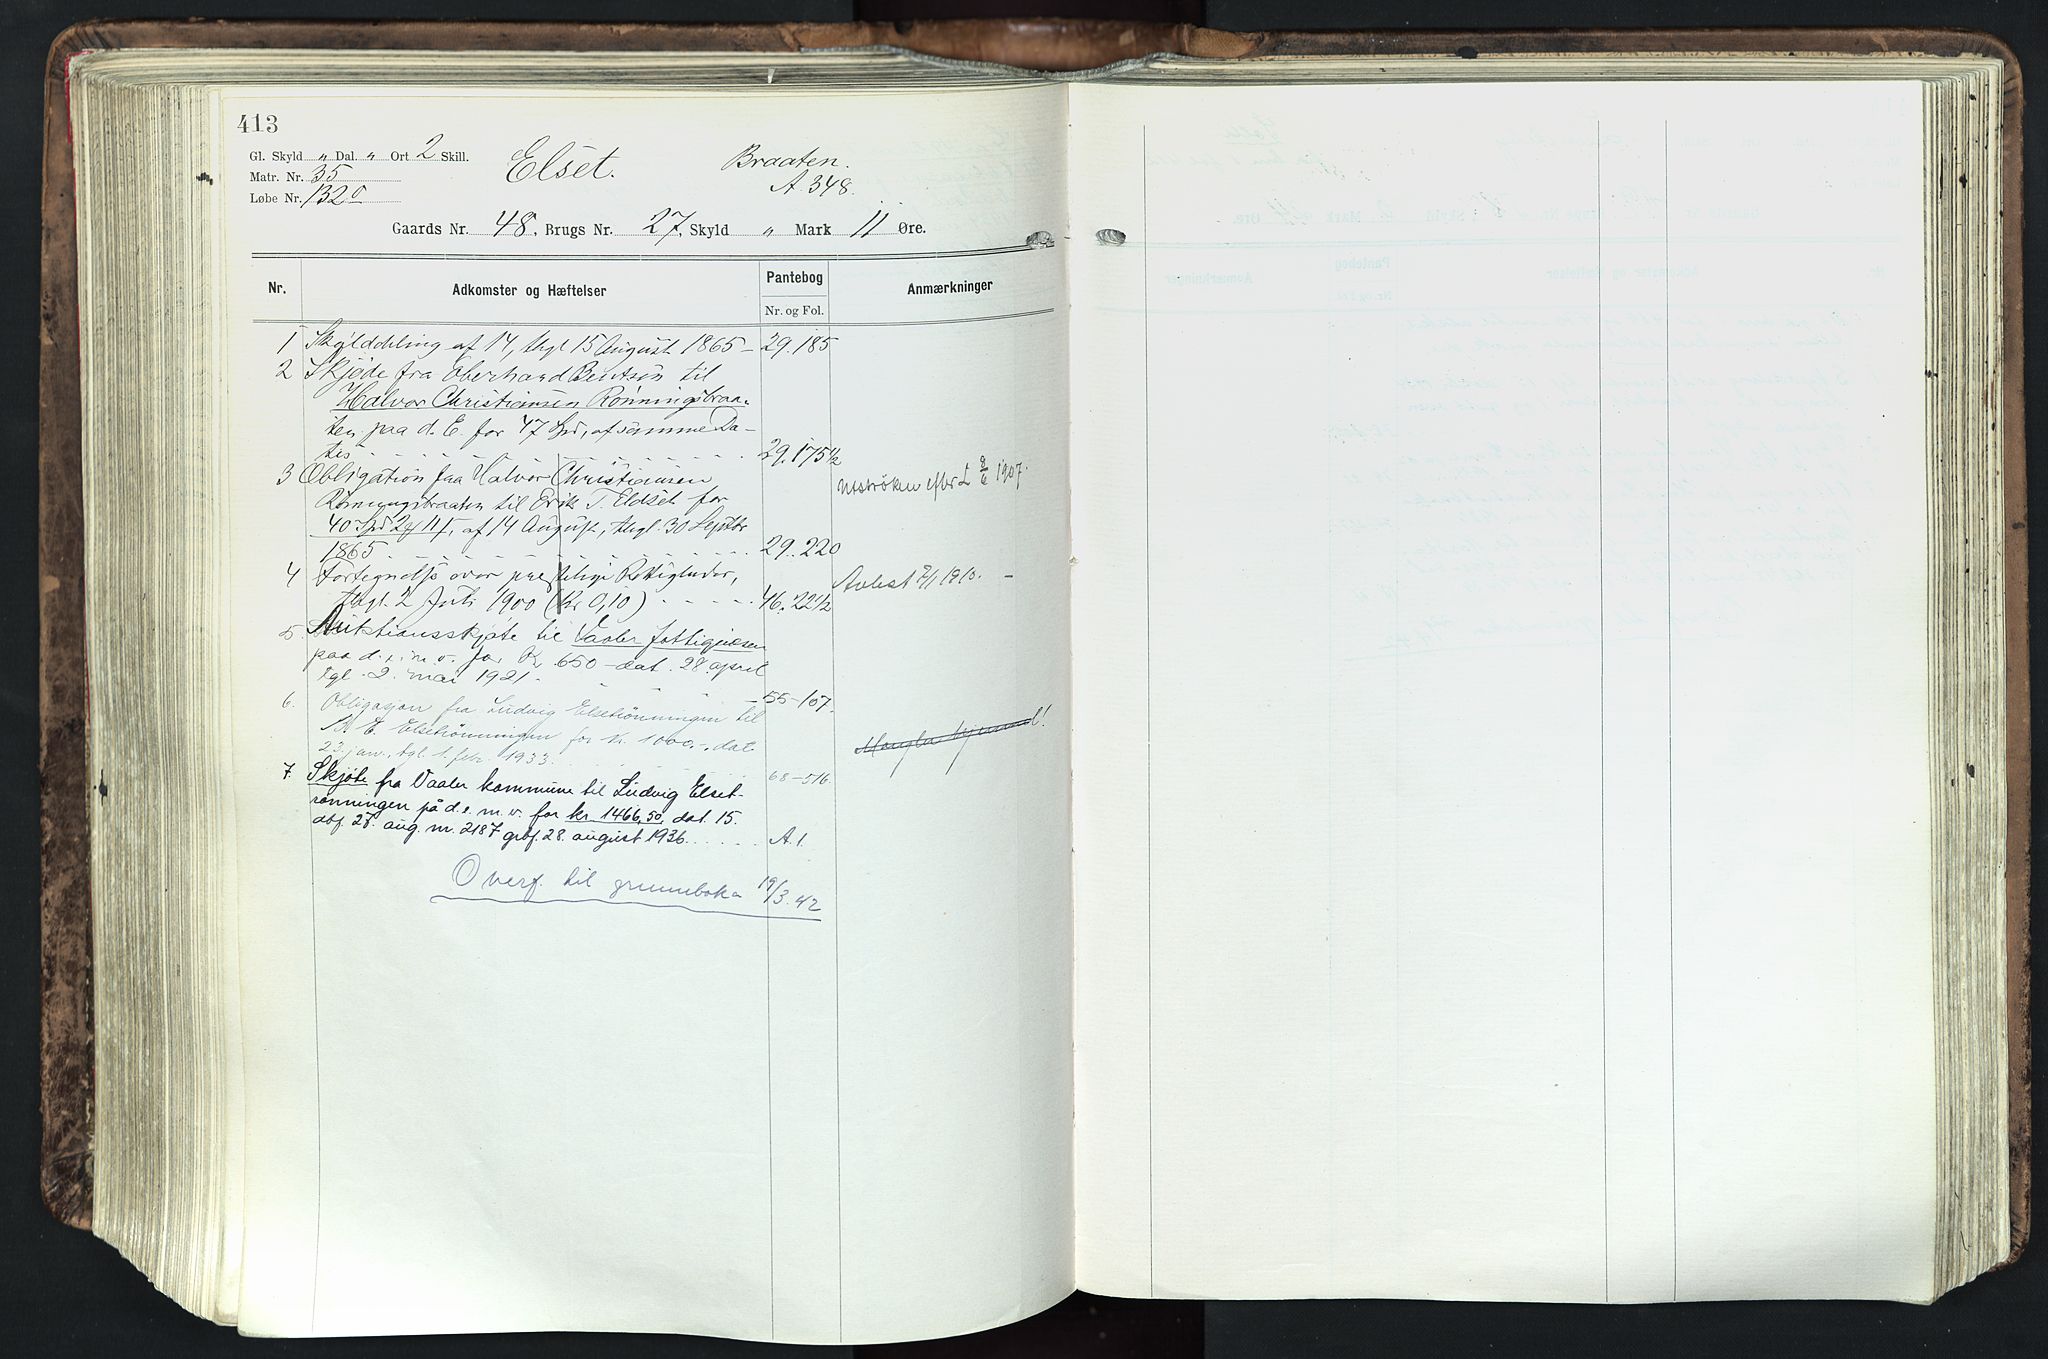 413
Gl. Skyld „ Dal. „ Ort 2 Skill.
Matr. Nr. 35
Løbe Nr. 132o
Elset.
Braaten.
A. 348.
Gaards Nr. 48, Brugs Nr. 27, Skyld „ Mark 11 Øre.
Nr. Adkomster og Hæftelser Pantebog Anmærkninger
Nr. og Fol.
1 Skylddeling af 14, thgl 15 August 1865 – 29.185
2 Skjøde fra Oberhard Bentsen til
Halvor Christiansen Rønningsbraa-
ten paa d. E. for 47 Spd, af samme Da-
tis 29.175½
3 Obligation fra Halvor Christiansen
Rønningsbraaten til Erik T. Eldset for
40 Spd af 14 August, thgl. 30 Septbr
1865 29.220
4 Fortegnelse over Rettigheder,
thgl. 2 Juli 1900 (Kr 0,10) 46.22½
Avlest 2/1 1910. –
5. Auktionsskjøte til Vaaler fattigvæsen
paa d. e. m. v. for Kr 650 – dat. 28. april
tgl. 2. mai 1921. – 55–107.
6. Obligasjon fra Ludvig Elsetrønningen til
M. E. Elsetrønningen for kr. 1000.–, dat.
23. jan., tgl. 1. febr. 1933. 68–516.
7. Skjøte fra Vaaler kommune til Ludvig Elset-
rønningen på d. e. m. v. for kr. 1466,50, dat. 15.
dbf. 27. aug. nr. 2187 grbf. 28. august 1936. A.1.
Overf. til grunnboka 19/3.42